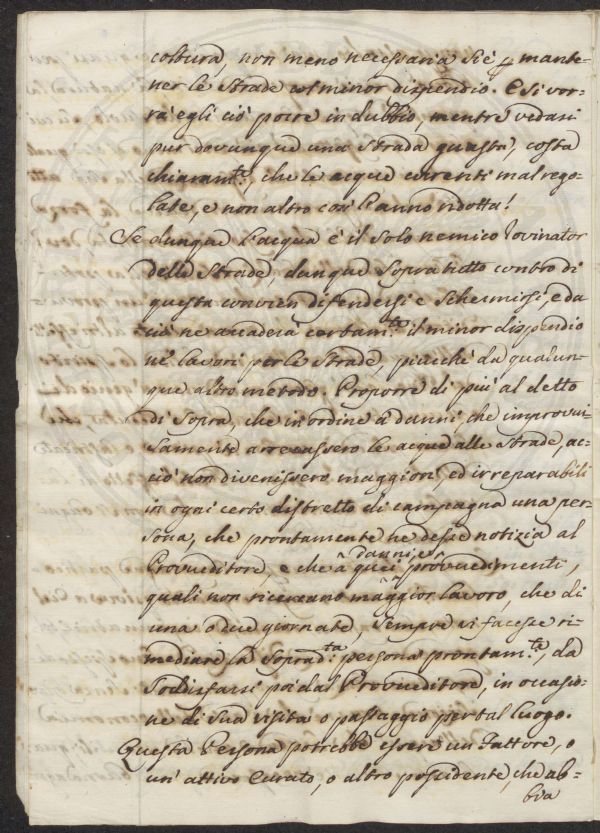 coltura, non meno necessaria si è p mante-
ner le Strade col minor dispendio. E si vor-
rà egli ciò porre in dubbio, mentre vedasi
pur dovunque una strada guasta, costa
chiaram.te, che le acque correnti mal rego-
late, e non altro così l'anno ridotta!
Se dunque l'acqua è il solo nemico rovinator
delle Strade, dunque sopra tutto contro di
questa convien difendersi e schermirsi, e da
ciò ne accaderà certam.te il minor dispendio
ne' lavori per le Strade, piucchè da qualun-
que altro metodo. Proporrei di più al detto
di sopra, che in ordine a' danni, che improvvi-
samente arrecassero le acque alle Strade, ac-
ciò non divenissero maggiori, ed irreparabili
in ogni certo distretto di campagna una per-
sona, che prontamente ne desse notizia al
Provveditore, e che a quei danni, e provvedimenti,
quali non ricercano maggior lavoro, che di
una o due giornate, sempre vi facesse ri-
mediare la soprad.ta persona prontam.te, da
sodisfarsi poi dal Provveditore, in occasio-
ne di sua visita o passaggio per tal luogo.
Questa Persona potrebbe essere un Fattore, o
un' attivo Curato, o altro possidente, che ab-
bia